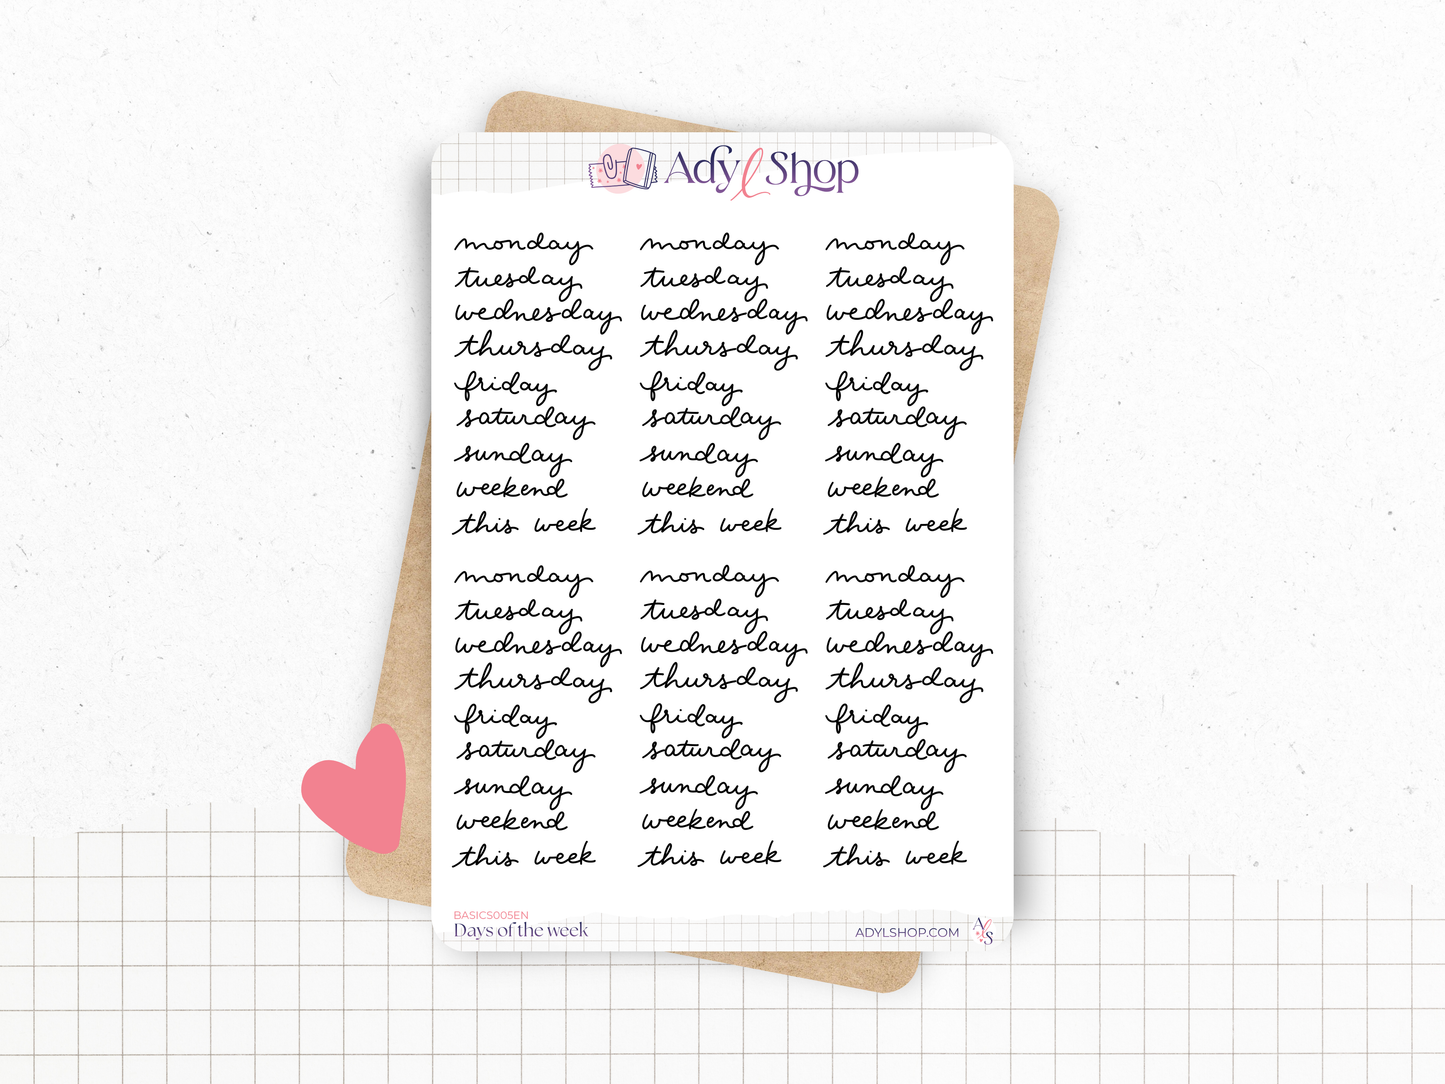 Ady l Shop
monday monday monday
tuesday tuesday tuesday
wednesday wednesday wednesday
thursday thursday thursday
friday friday friday
saturday saturday saturday
sunday sunday sunday
weekend weekend weekend
this week this week this week
monday monday monday
tuesday tuesday tuesday
wednesday wednesday wednesday
thursday thursday thursday
friday friday friday
saturday saturday saturday
sunday sunday sunday
weekend weekend weekend
this week this week this week
BASICS005EN
Days of the week
ADYLSHOP.COM
AlS